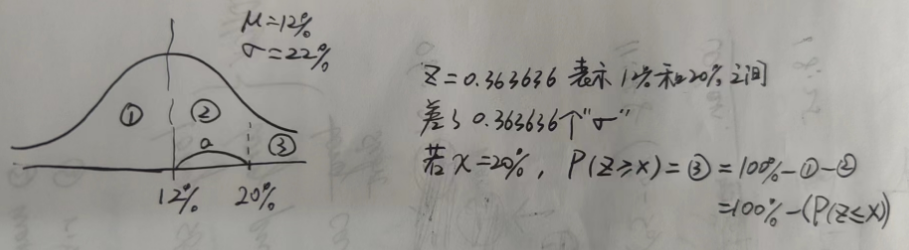 μ=12%
σ=22%
① ② ③
a
12% 20%
Z=0.363636 表示 12%和20%之间
差了 0.363636个"σ"
若 x=20%, P(Z≥x)=③=100%-①-②
=100%-(P(Z≤x))